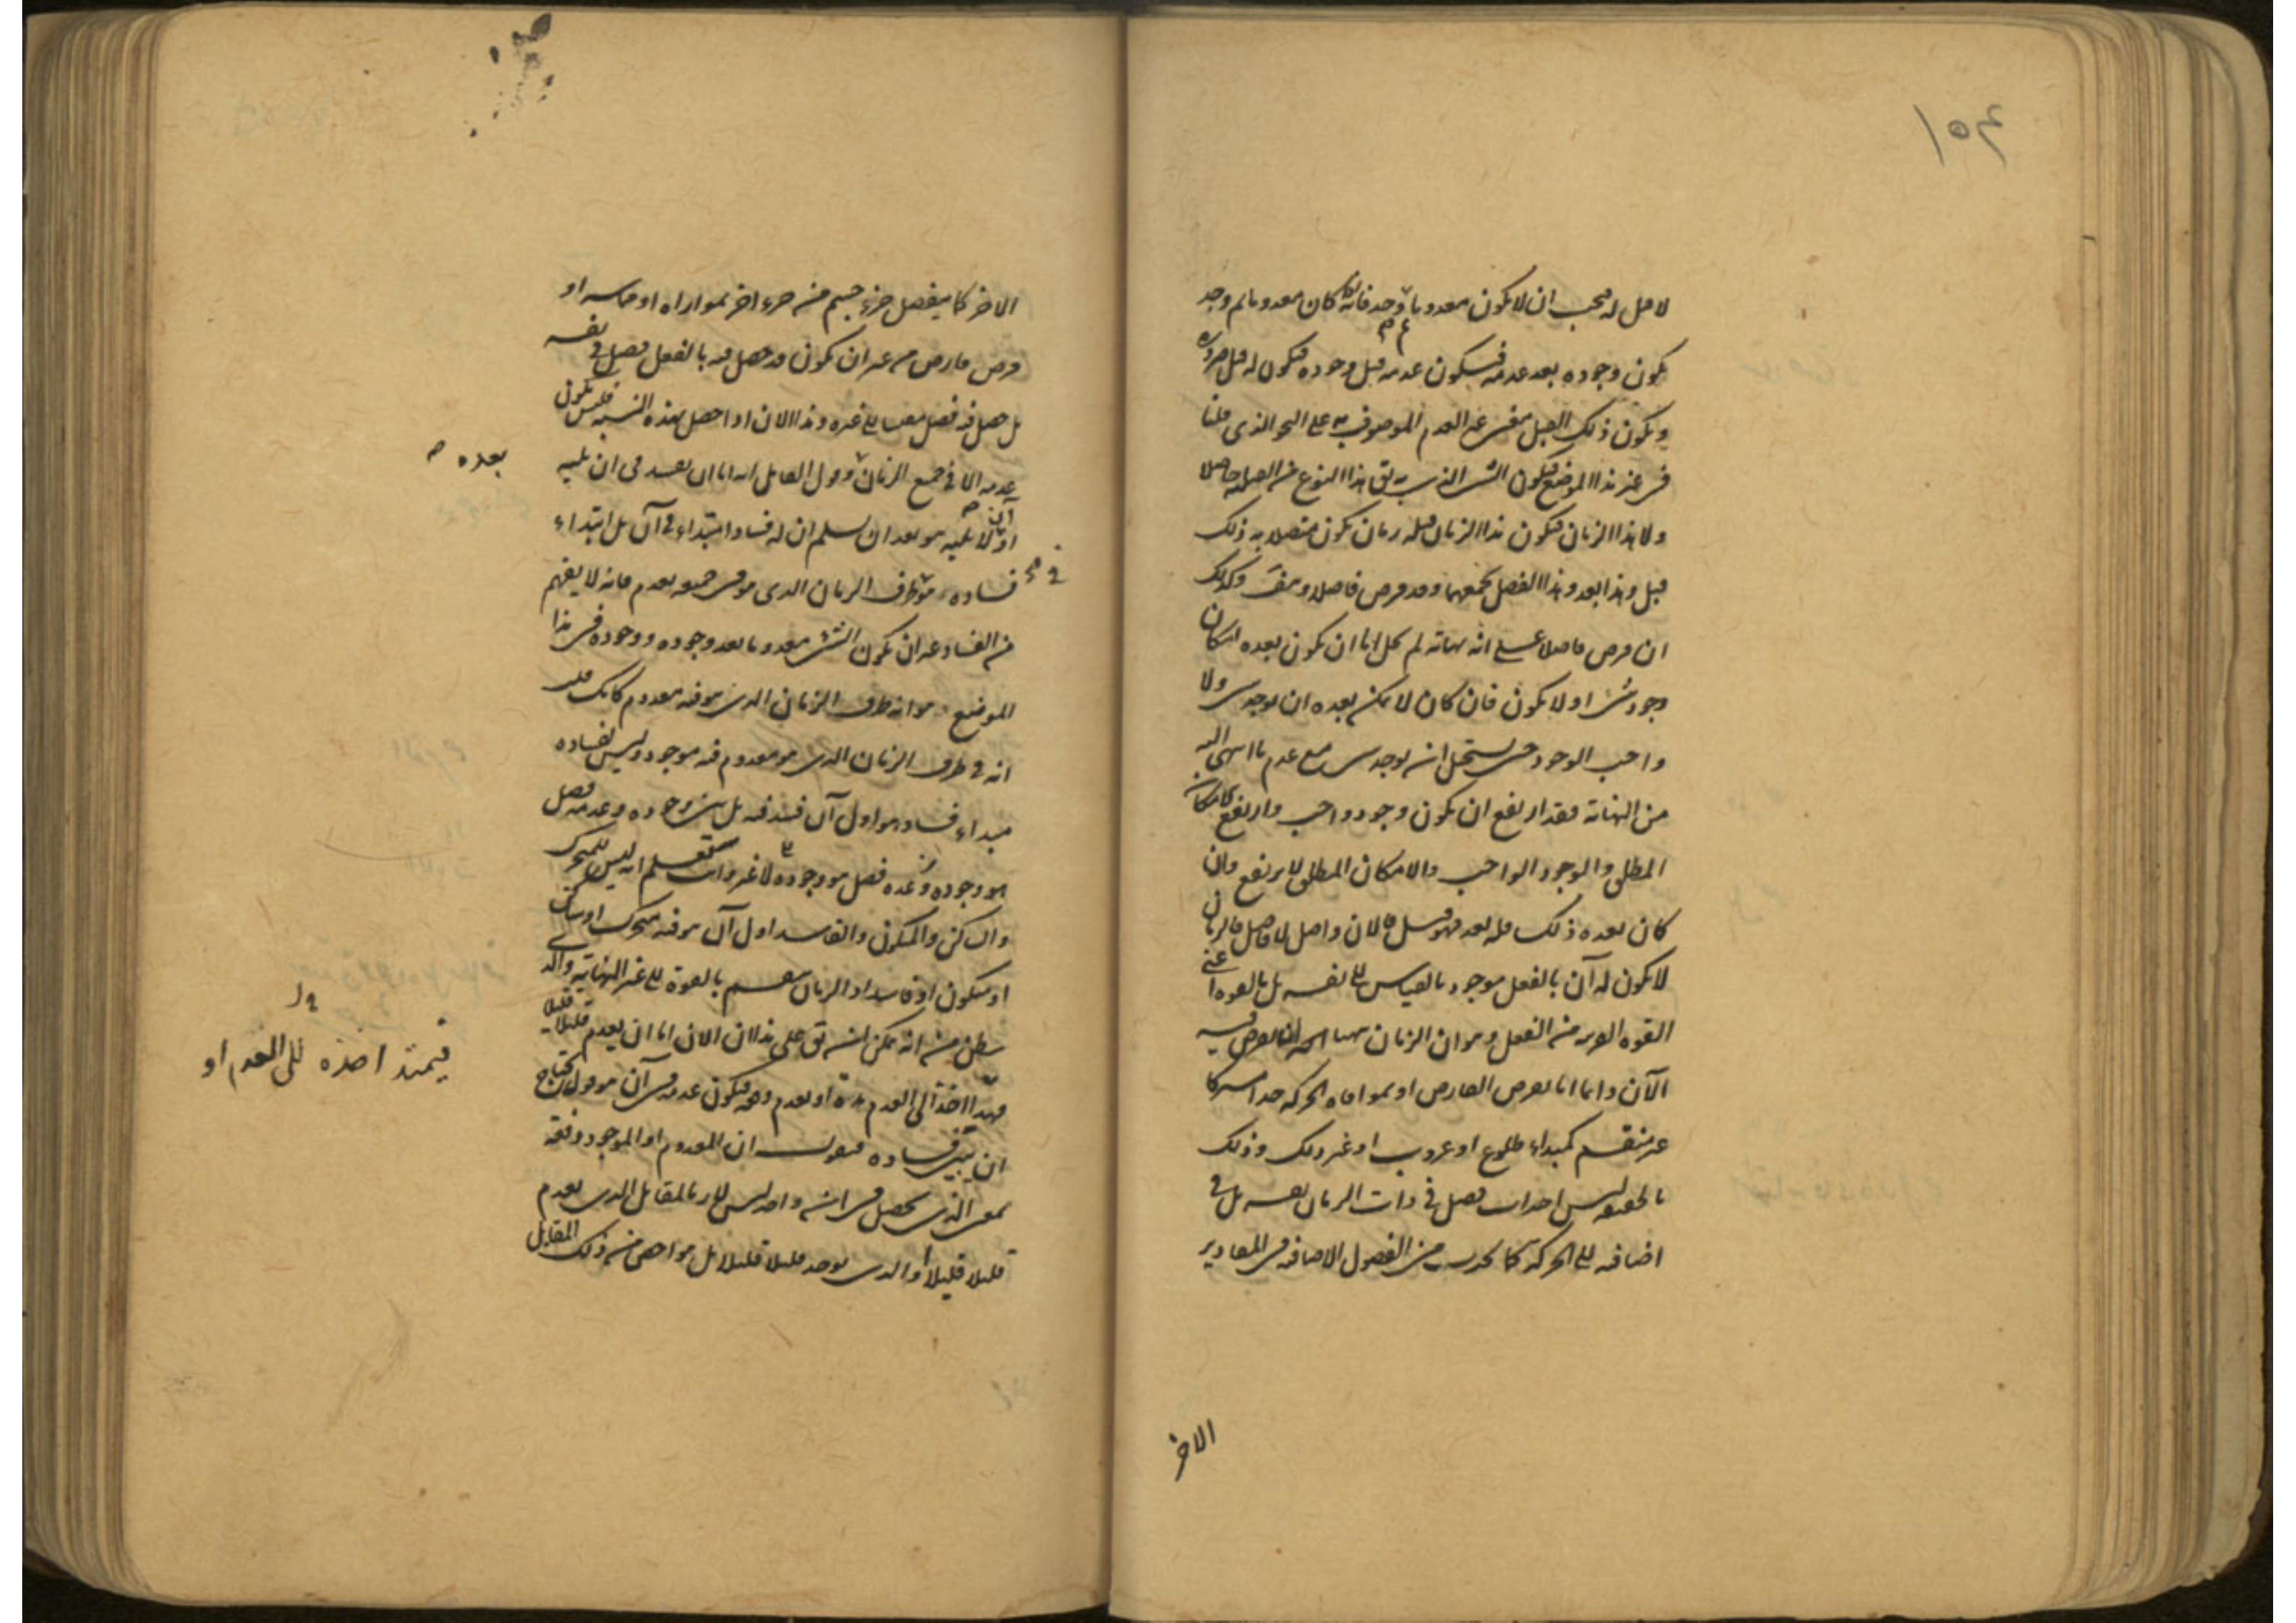 ١٥٤
لا قبل له فيجب ان لا يكون معدوما ثم وجد فانه اذا كان معدوما ثم وجد
يكون وجوده بعد عدمه فيكون عدمه قبل وجوده فيكون له قبل ضرورة
ويكون ذلك القبل معنى غير العدم الموصوف به على النحو الذى قلنا
فى غير هذا الموضع فيكون الشىء الذى به يق هذا النوع من القبلية حاصلا
ولا هذا الزمان فيكون هذا الزمان قبله زمان يكون متصلا به ذلك
قبل وهذا بعد وهذا الفصل يجمعهما وقد فرض فاصلا وكذلك
ان فرض فاصلا على انه نهاية لم يخل اما ان يكون بعده امكان
وجود شىء او لا يكون فان كان لا يمكن بعده ان يوجد شىء ولا
واجب الوجود حتى يستحيل ان يوجد شىء مع عدم ما انتهى اليه
من النهاية فقد ارتفع ان يكون وجود واجب وارتفع الامكان
المطلق والوجود الواجب والامكان المطلق لا يرتفع وان
كان بعده ذلك فله بعد فهو قبل فالان واصل لا فاصل فالزمان
لا يكون له آن بالفعل موجود بالقياس الى نفسه بل بالقوة اعنى
القوة القريبة من الفعل وهو ان الزمان يتهيأ ان يفرض فيه
الآن دائما اما بفرض الفارض او بموافاة الحركة حدا مشتركا
غير منقسم كمبداء طلوع او غروب او غير ذلك وذلك
بالحقيقة ليس احداث فصل فى ذات الزمان نفسه بل فى
اضافته الى الحركة كما يحدث من الفصول الاضافية فى المقادير
الاخر
الاخر كما ينفصل جزء جسم من جزء اخر بموازاة او مماسة او
فرض فارض من غير ان يكون قد حصل فيه بالفعل فصل فى نفسه
بل حصل فيه فصل مقيسا الى غيره وهذا الان اذا حصل بهذه النسبة فليس يكون
عدمه الا فى جميع الزمان بعده وقول القائل انه اما ان يفسد فى ان يليه
او ان لا يليه هو بعد ان يسلم ان له فسادا ابتداء فى آن بل ابتداء
فساده هو فى طرف الزمان الذى هو فى جميعه يعدم فانه لا يفهم
من الفساد غير ان يكون الشىء معدوما بعد وجوده ووجوده فى هذا
الموضع هو انه طرف الزمان الذى هو فيه معدوم كانك قلت
انه فى طرف الزمان الذى هو معدوم فيه موجود وليس لفساده
مبداء فساد هو اول آن فسد فيه بل بين وجوده وعدمه فصل
هو وجوده لا غير وانت ستعلم انه ليس للمتحرك
والساكن والمتكون والفاسد اول آن هو فيه متحرك او ساكن
او متكون او فاسد اذ الزمان منقسم بالقوة الى غير النهاية والذى
يظن من انه يمكن ان يق على هذا ان الان اما ان يعدم قليلا قليلا
فيمتد اخذه الى العدم مدة او يعدم دفعة فيكون عدمه فى آن هو قول يحتاج
ان يبين فساده فنقول ان المعدوم او الموجود دفعة
بمعنى الذى يحصل فى ان واحد ليس لازما لمقابل الذى يعدم
قليلا قليلا او الذى يوجد قليلا قليلا بل هو اخص من ذلك المقابل
بعده صح
فيمتد اخذه الى العدم او